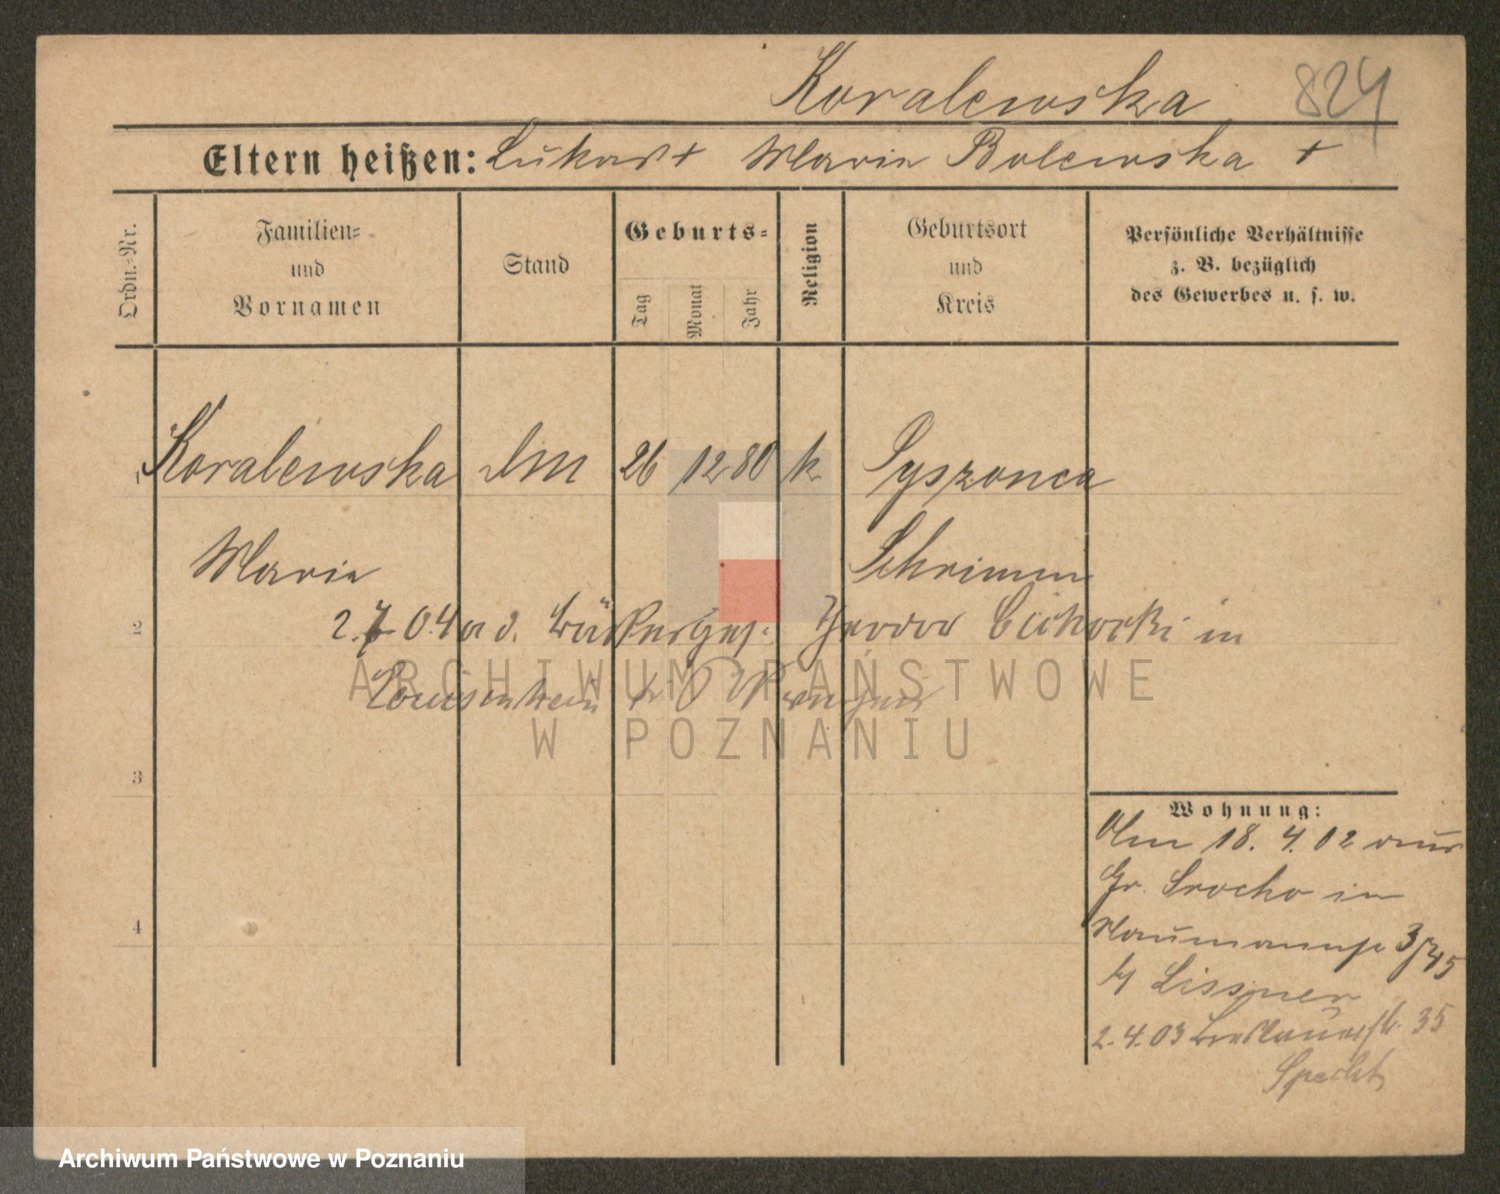 Koralewska 824
Eltern heißen: Lukas + Marie Bolewska +
Ordn.-Nr.
Familien-
und
Vornamen
Stand
Geburts-
Tag
Monat
Jahr
Religion
Geburtsort
und
Kreis
Persönliche Verhältnisse
z. B. bezüglich
des Gewerbes u. s. w.
1 Koralewska 26 12 80 k
Marie Schrimm
2 2.7.04 a. d. Teodor Cichocki in
ARCHIWUM PAŃSTWOWE
W POZNANIU
3
4
Wohnung:
18. 4. 02 aus
Gr. Srocko in
Naumannstr
b/ Lissner
2.4.03 Breslauerstr. 35
Specht
Archiwum Państwowe w Poznaniu